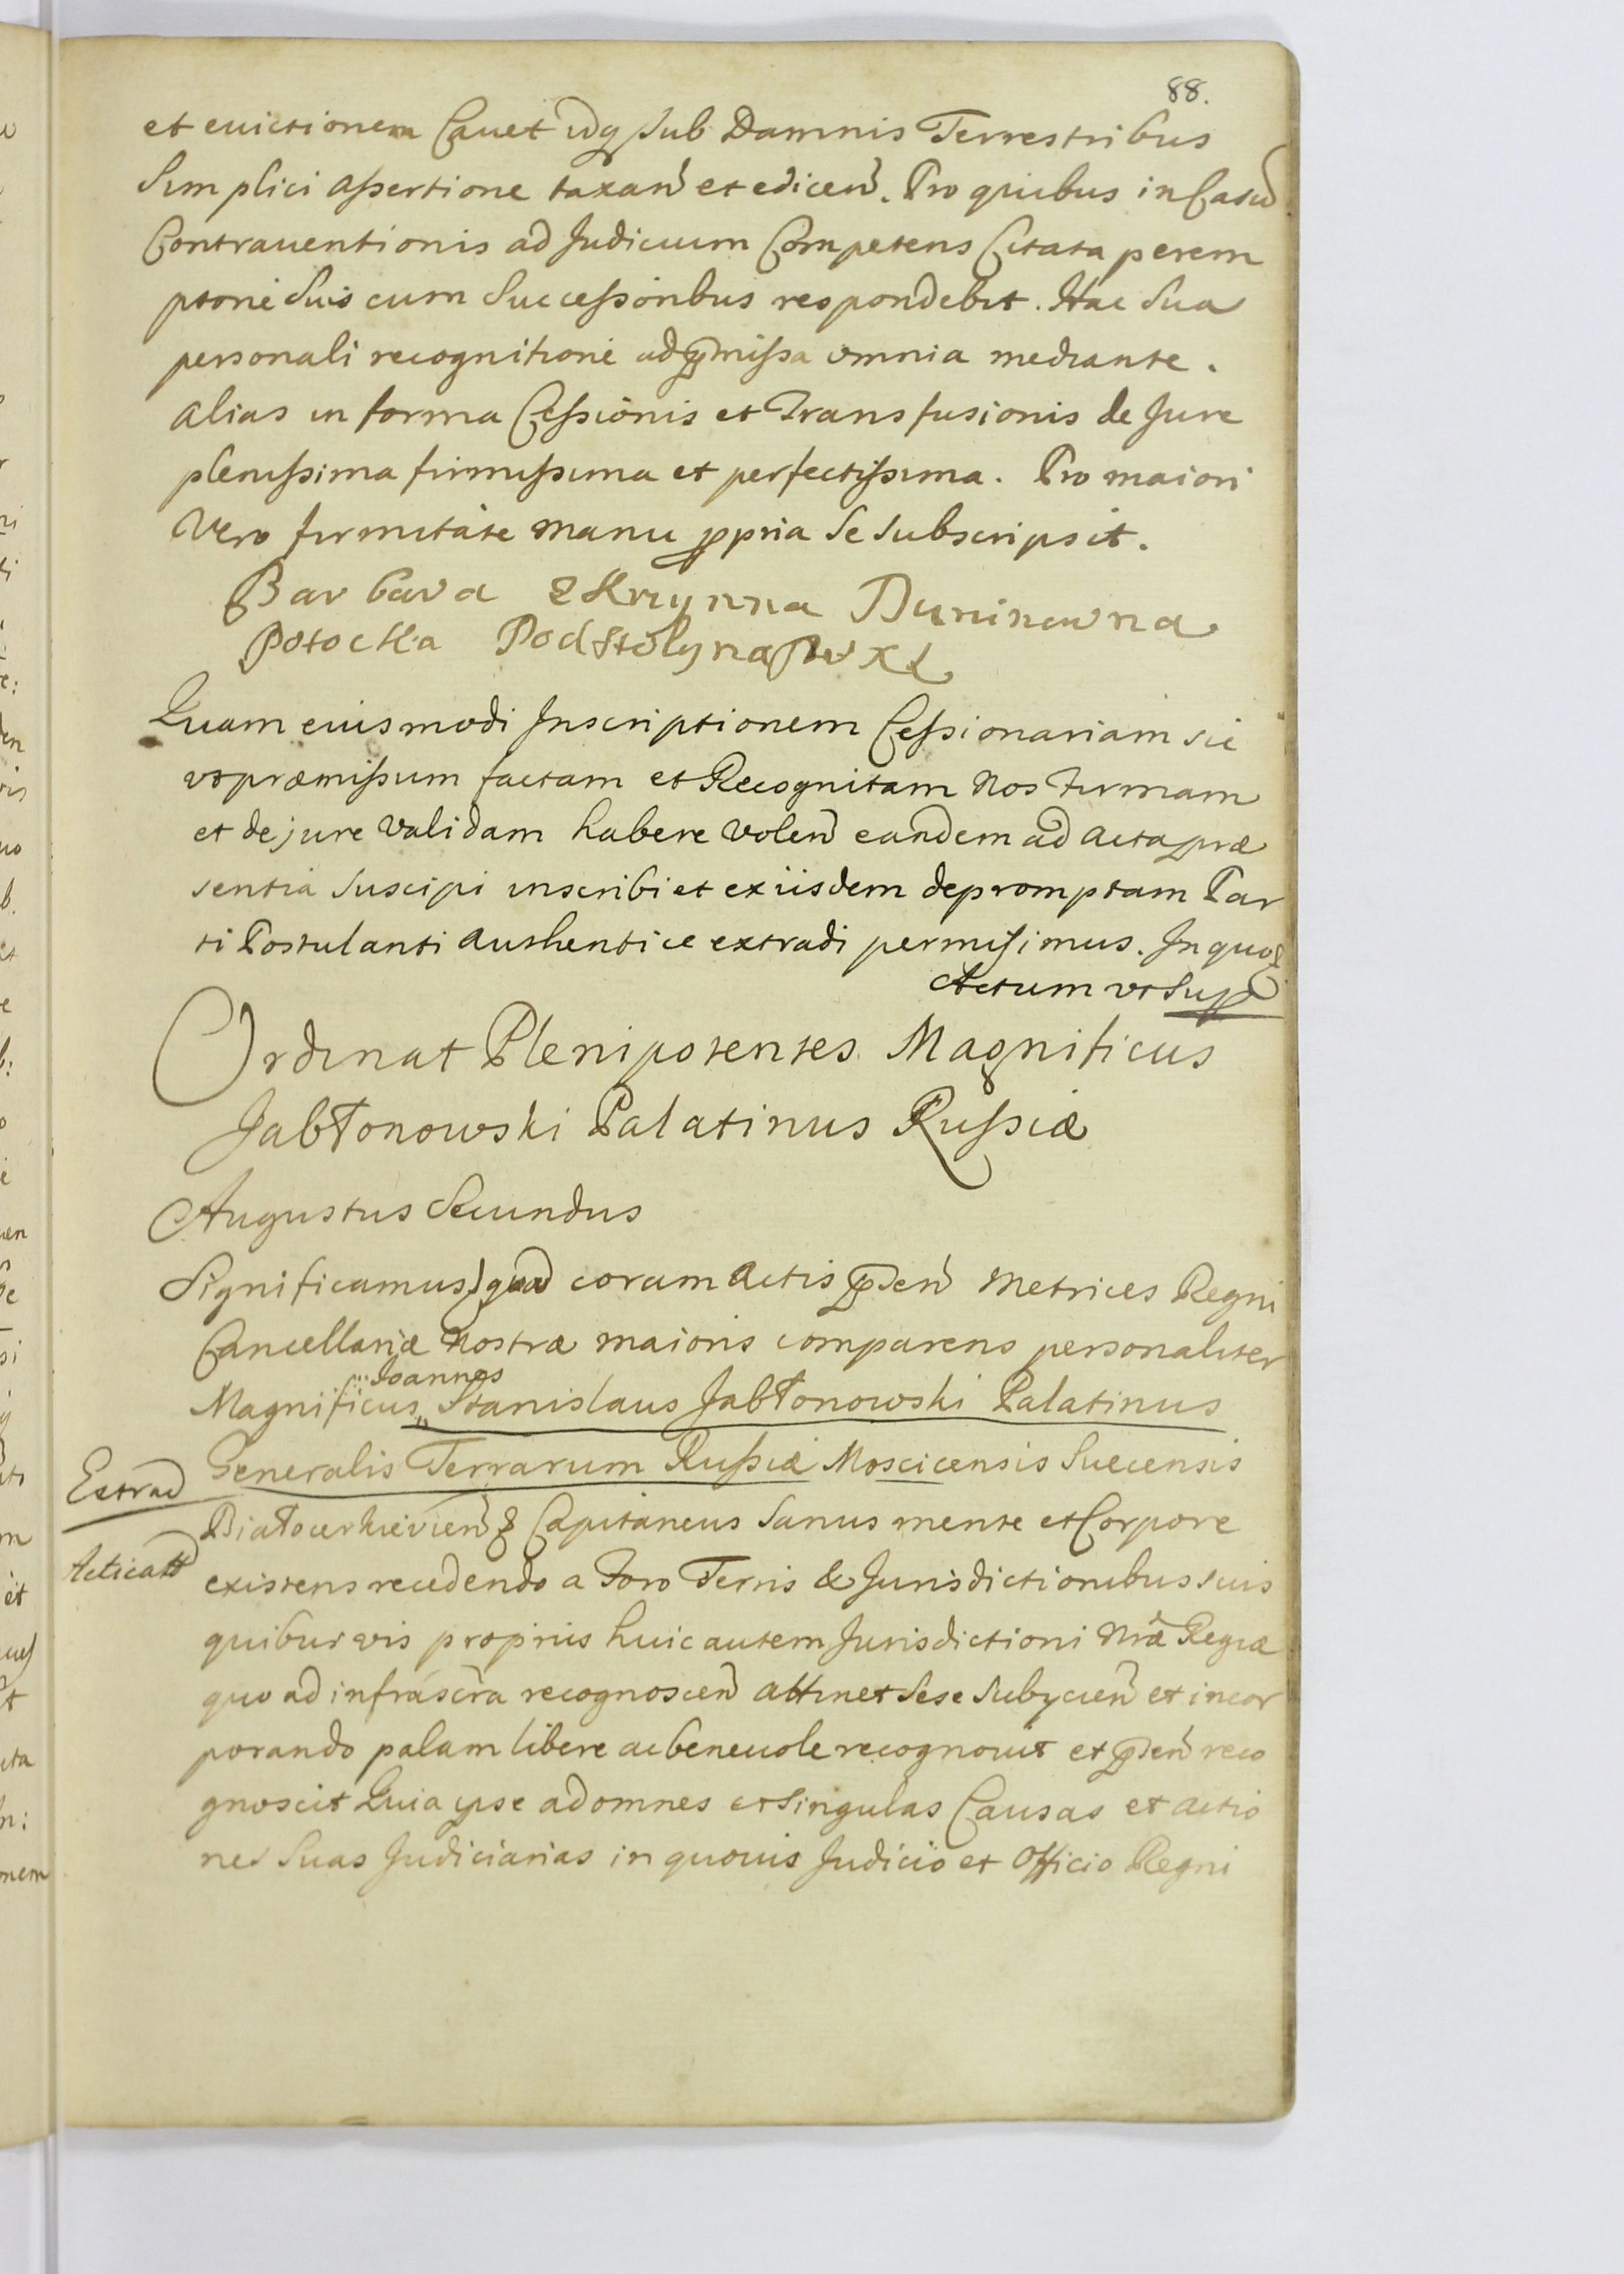 88.
et euictionem Cauet idq sub Damnis Terrestribus
Simplici assertione taxan et edicen. Pro quibus in Casu
Contrauentionis ad Judicium Competens Citata perem
ptorie Suis cum Successoribus respondebit. Hac Sua
personali recognitione ad pmissa omnia mediante.
alias in forma Cessionis et Transfusionis de Jure
plenissima firmissima et perfectissima. Pro maiori
Vero firmitate manu ppria Se Subscripsit.
Barbara Duninowna
Potocka Podstolyna WXL
Quam eiusmodi Inscriptionem Cessionariam sic
vt præmissum factam et Recognitam Nos Firmam
et de jure Validam habere Volen eandem ad acta præ
sentia Suscipi inscribi et ex iisdem depromptam Par
ti Postulanti authentice extradi permisimus. In quo
Actum vt Sup
Ordinat Plenipotentes Magnificus
Jabłonowski Palatinus Russiæ
Augustus Secundus
Significamus quod coram actis psen Metrices Regni
Cancellariæ Nostræ maioris comparens personaliter
Joannes
Magnificus Stanislaus Jabłonowski Palatinus
Generalis Terrarum Russiæ Moscicensis Suecensis
Extrad
Białocerkievien Capitaneus Sanus mente et Corpore
Acticatt
existens recedendo a Foro Terris & Jurisdictionibus suis
quibusvis proprijs huic autem Jurisdictioni Nræ Regiæ
quo ad infrascra recognoscen attinet Sese Subycien et incor
porando palam libere ac beneuole recognouit et psen reco
gnoscit Quia ipse ad omnes et Singulas Causas et actio
nes Suas Judiciarias in quouis Judicio et Officio Regni